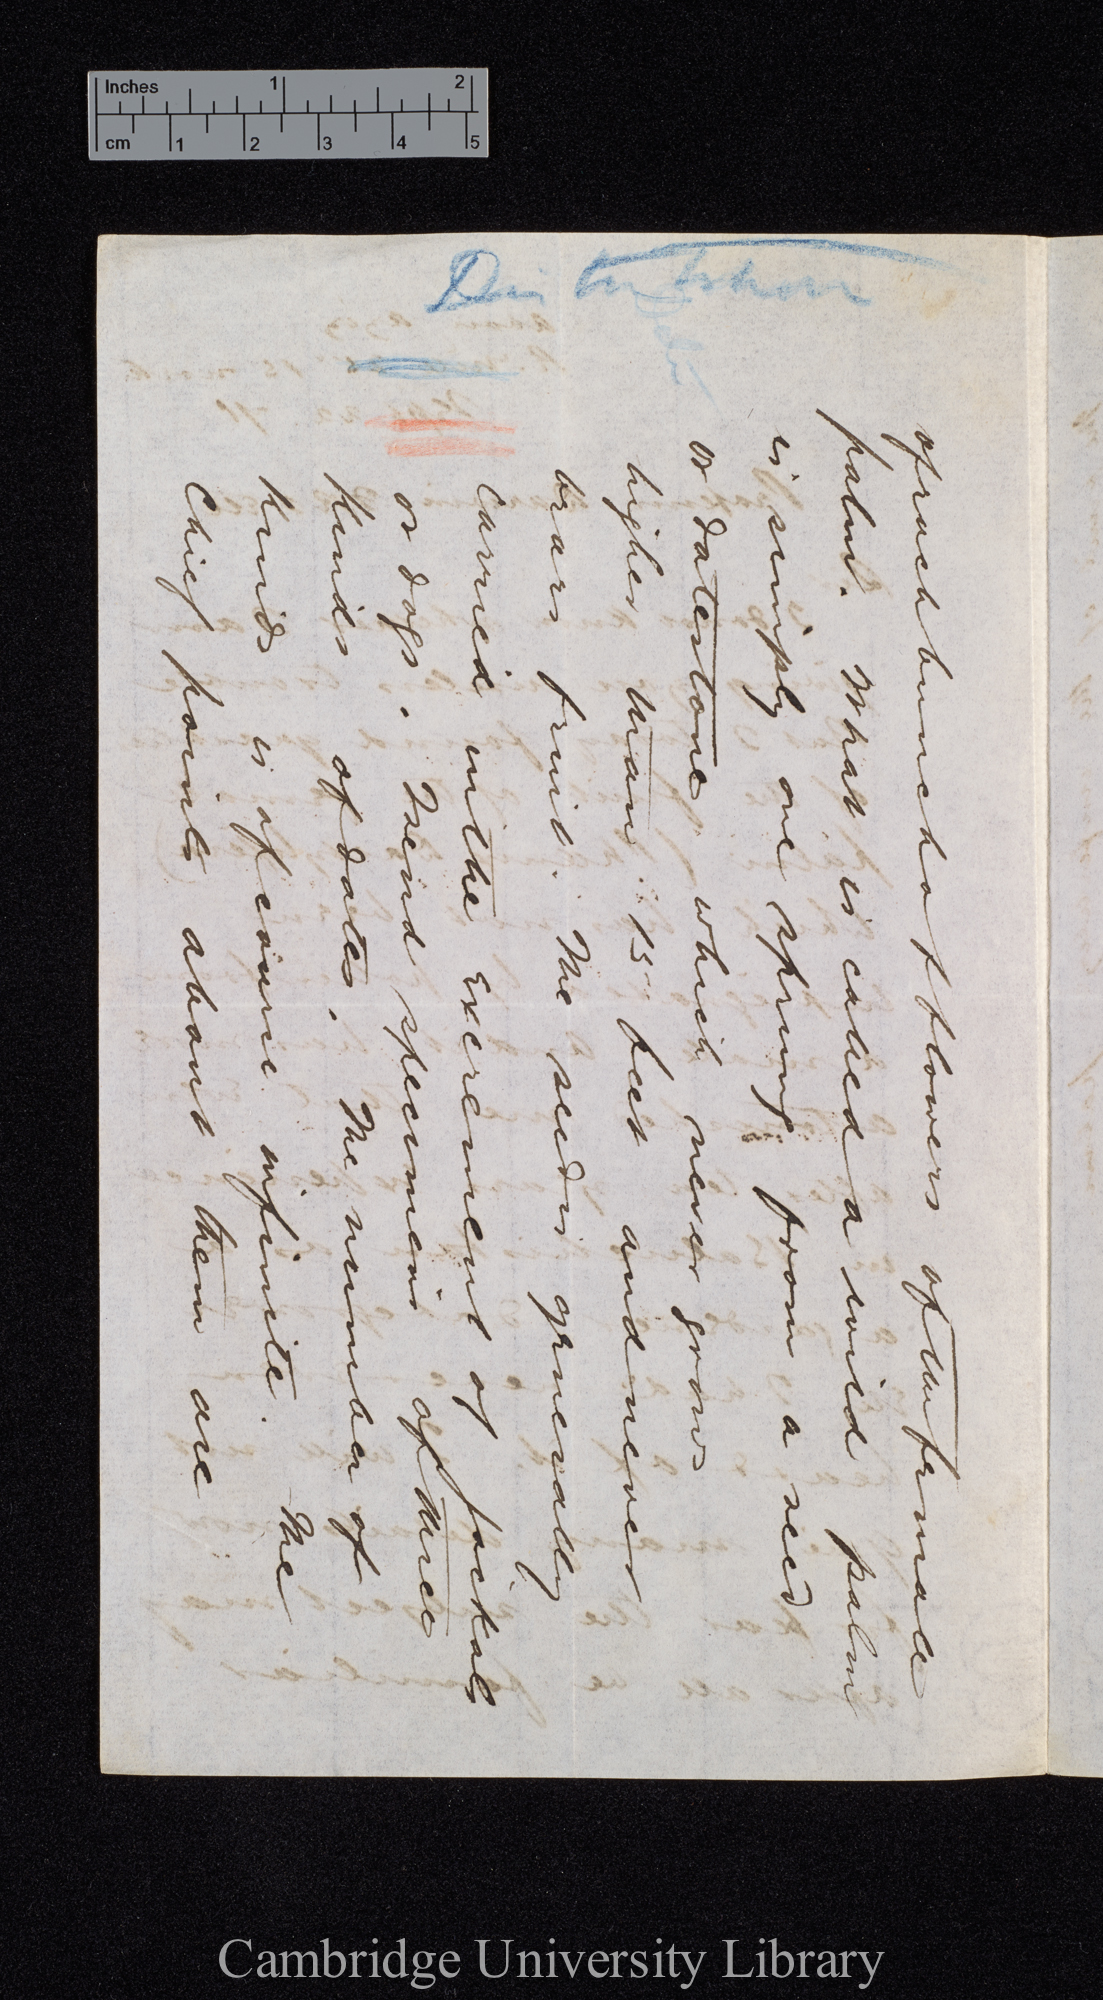 Inches 1 2
cm 1 2 3 4 5
Distribution
of each bunch of flowers of the female
palm. What is called a wild palm
is simply one sprung from a seed
or datestone which never grows
higher than 15 feet and never
bears fruit. The seed is generally
carried in the excrement of jackals
or dogs. I send specimens of three
kinds of dates. The number of
kinds is of course infinite. The
chief points about them are
Cambridge University Library